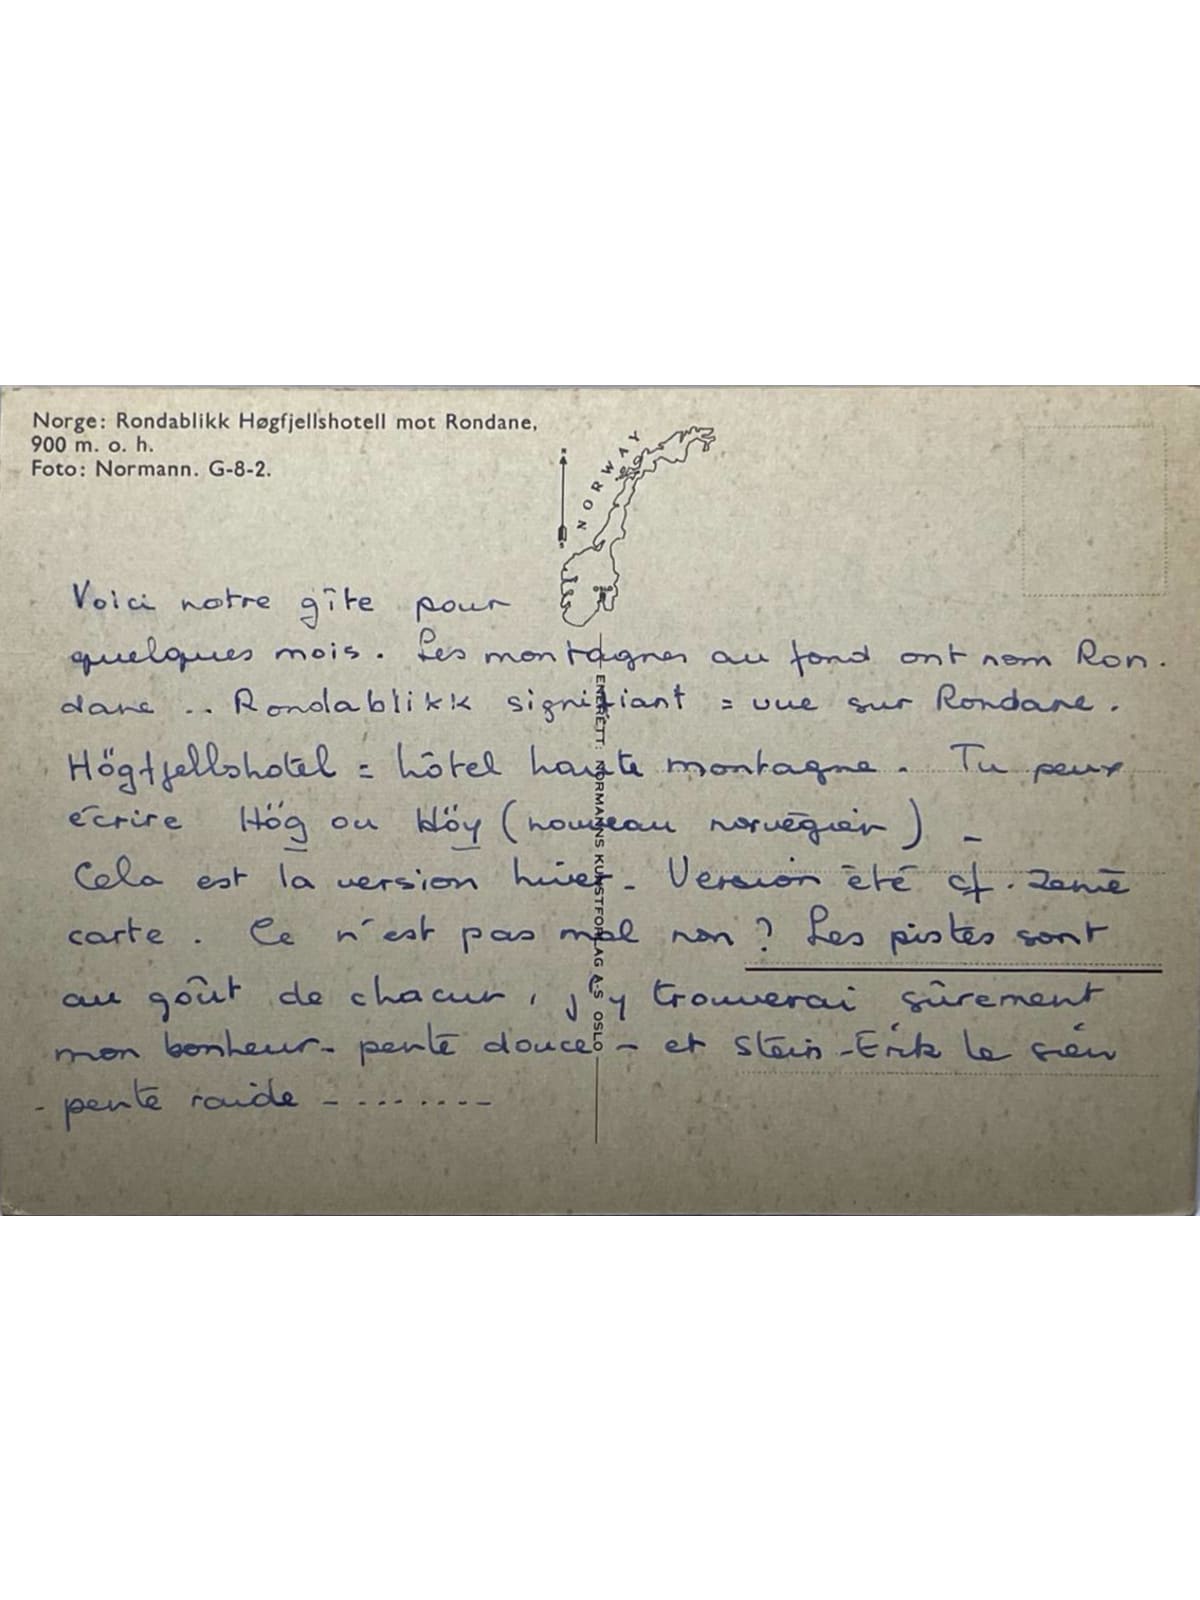 Norge: Rondablikk Høgfjellshotell mot Rondane,
900 m. o. h.
Foto: Normann. G-8-2.
NORWAY
Voici notre gîte pour
quelques mois. Les montagnes au fond ont nom Ron.
dane .. Rondablikk signifiant = vue sur Rondane.
Högfjellshotel = hôtel haute montagne. Tu peux
écrire Hög ou Höy (nouveau norvégien) _
Cela est la version hiver. Version été cf. 2eme
carte. Ce n'est pas mal non ? Les pistes sont
au goût de chacun, j'y trouverai sûrement
mon bonheur - pente douce - et Stein-Erik le sien
- pente raide - . . . . . . .
ENERETT: NORMANNS KUNSTFORLAG A.S OSLO